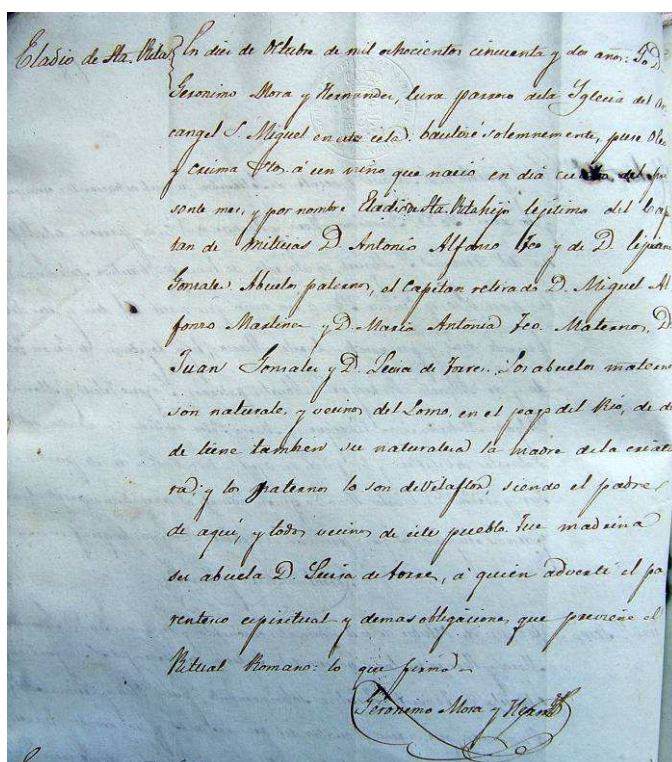 Eladio de Sta. Rita
En dies de Octubre de mil ochocientos cincuenta y dos años: Yo D.
Geronimo Mora y Hernandes, Cura parroco dela Yglecia del
cangel S. Miguel en bautisé solemnemente, puse Oleo
y crisma a un niño que nació en dia del pre
sente mes, y por nombre Eladio de Sta. Rita hijo lejitimo del Capi
tan de milicias D. Antonio Alfonso Feo y de D. Cipriana
Gonzales. Abuelos paternos, el Capitan retirado D. Miguel Al
fonzo Martines y D. Maria Antonia Feo. Maternos, D.
Juan Gonsales y D. Luisa de Torres. Los abuelos maternos
son naturales y vecinos del Lomo, en el pago del Rio, de don
de tiene tambien su naturalesa la madre dela criatu
ra; y los paternos lo son de Vilaflor, siendo el padre
de aquí, y todos vecinos de este pueblo. Fue madrina
su abuela D. Luisa de torres, á quien advertí el pa
rentesco espiritual y demas obligaciones que previene el
Ritual Romano: lo que firmo
Geronimo Mora y Hernz.